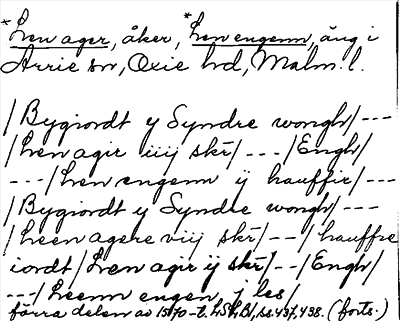 *Len ager, åker, *Len engenn, äng i
Arrie sn, Oxie hd, Malm. l.
/Bygiordt y Syndre wongh/ ---
/Len agir iiij skr/ --- /Engh/
--- /Len engenn ij hauffir/ ---
/Bygiordt y Syndre wongh/ ---
/Leen agere viij skr/ -- / hauffre
iordt/Len agir ij skr/ -- /Engh/
---/Leenn engen j les/
förra delen av 1570-t. LSH, BI, ss. 437, 438. (forts.)